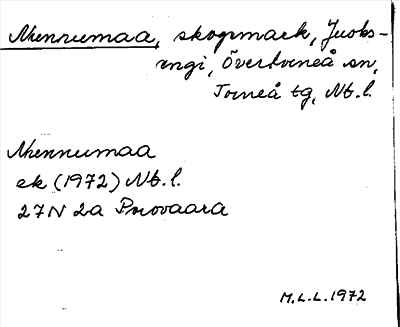 Niemenmaa, skogsmark, Juoks-
engi, Övertorneå sn,
Torneå tg, Nb. l.
Niemenmaa
ek (1972) Nb. l.
27N 2a Puovaara
M.L.L. 1972